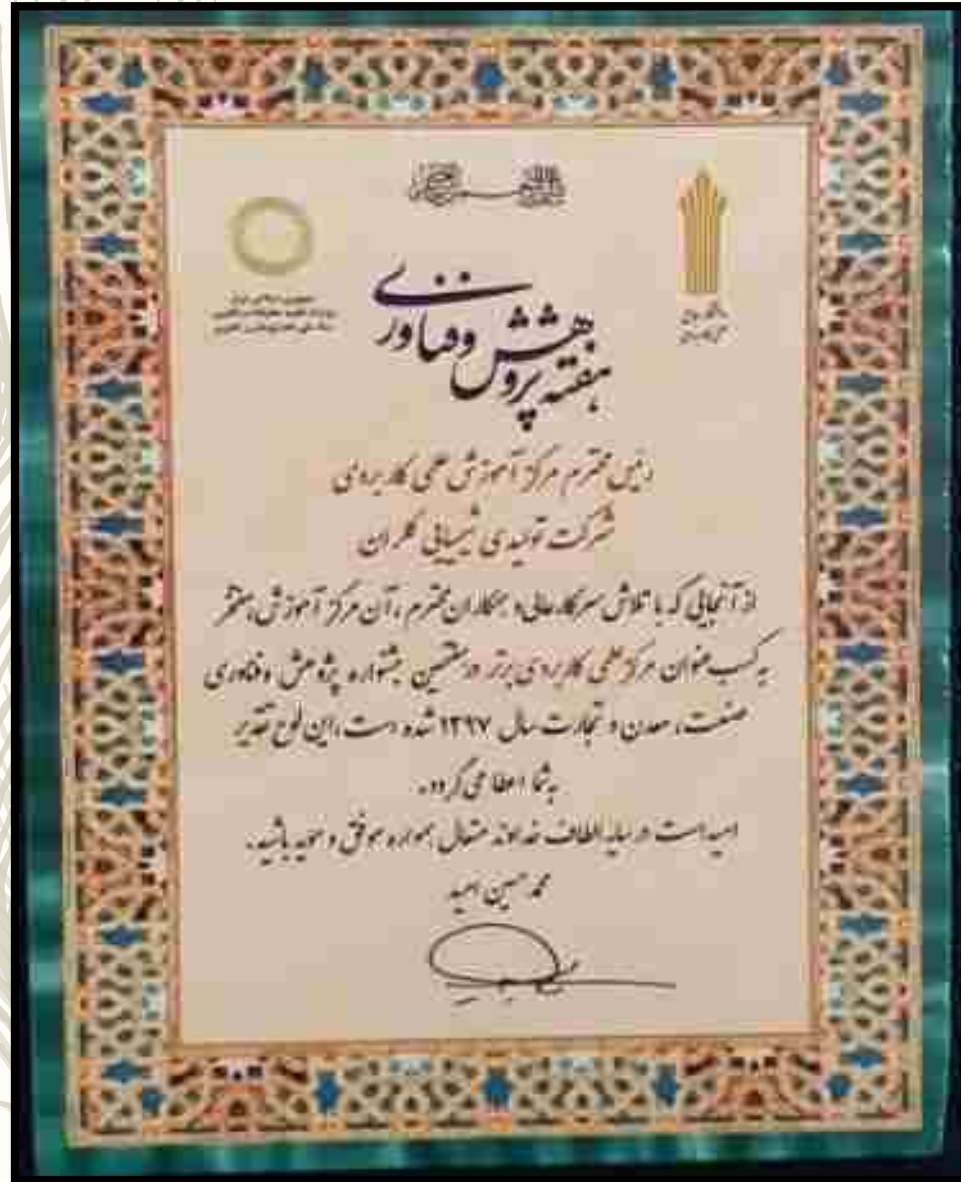 بسم الله الرحمن الرحیم
هفته پژوهش و فناوری
رئیس محترم مرکز آموزش علمی کاربردی
شرکت تولیدی شیمیایی کلران
از آنجایی که با تلاش سرکارعالی و همکاران محترم، آن مرکز آموزش، مفتخر
به کسب عنوان مرکز علمی کاربردی برتر در هشتمین جشنواره پژوهش و فناوری
صنعت، معدن و تجارت سال ۱۳۹۷ شده است، این لوح تقدیر
به شما اعطا می گردد.
امید است در سایه الطاف خداوند متعال همواره موفق و موید باشید.
محمد حسین امید